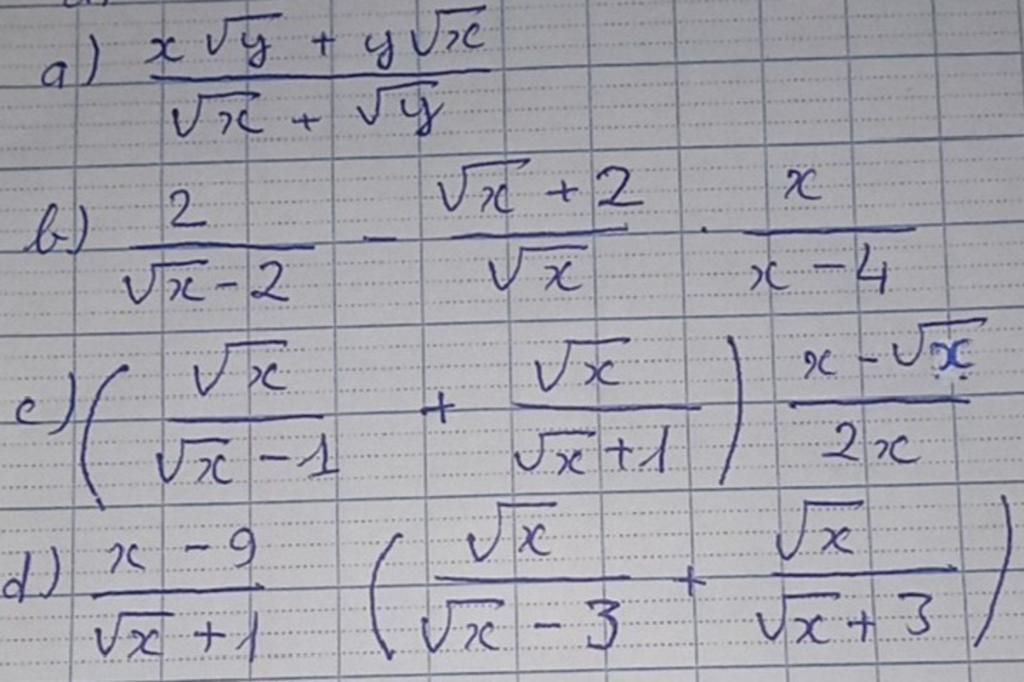 a) \frac{x\sqrt{y} + y\sqrt{x}}{\sqrt{x} + \sqrt{y}}
b) \frac{2}{\sqrt{x} - 2} - \frac{\sqrt{x} + 2}{\sqrt{x}} \cdot \frac{x}{x - 4}
c) \left( \frac{\sqrt{x}}{\sqrt{x} - 1} + \frac{\sqrt{x}}{\sqrt{x} + 1} \right) \frac{x - \sqrt{x}}{2x}
d) \frac{x - 9}{\sqrt{x} + 1} \left( \frac{\sqrt{x}}{\sqrt{x} - 3} + \frac{\sqrt{x}}{\sqrt{x} + 3} \right)